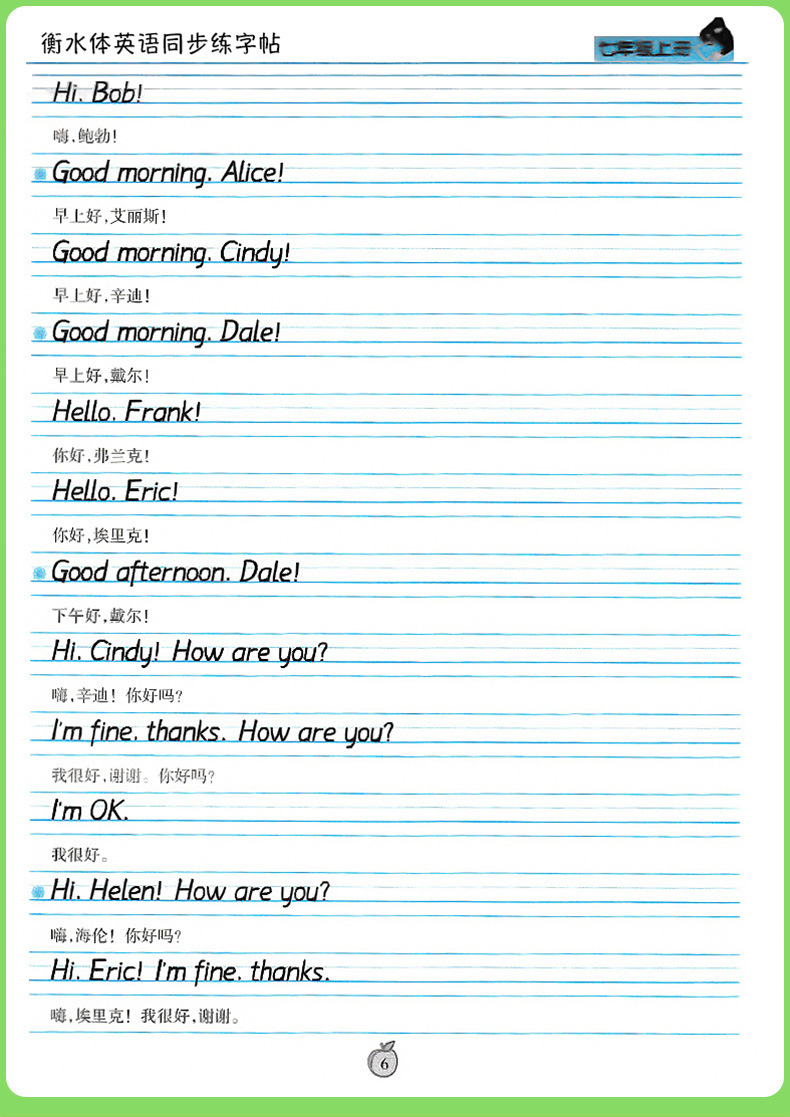 衡水体英语同步练字帖
七年级上册
Hi, Bob!
嗨,鲍勃!
Good morning, Alice!
早上好,艾丽斯!
Good morning, Cindy!
早上好,辛迪!
Good morning, Dale!
早上好,戴尔!
Hello, Frank!
你好,弗兰克!
Hello, Eric!
你好,埃里克!
Good afternoon, Dale!
下午好,戴尔!
Hi, Cindy! How are you?
嗨,辛迪! 你好吗?
I'm fine, thanks. How are you?
我很好,谢谢。你好吗?
I'm OK.
我很好。
Hi, Helen! How are you?
嗨,海伦! 你好吗?
Hi, Eric! I'm fine, thanks.
嗨,埃里克! 我很好,谢谢。
6